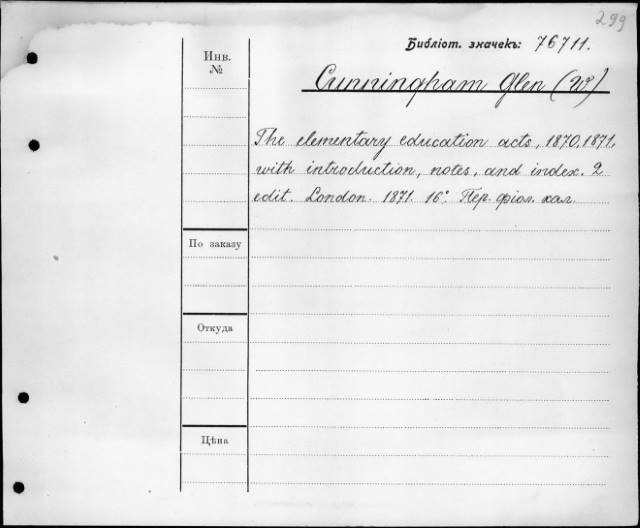 299
Библіот. значекъ: 76711.
Инв.
№
Cunningham Glen (W)
The elementary education acts, 1870, 1871,
with introduction, notes, and index. 2
edit. London. 1871. 16°. Пер. фіол. кал.
По заказу
Откуда
Цѣна